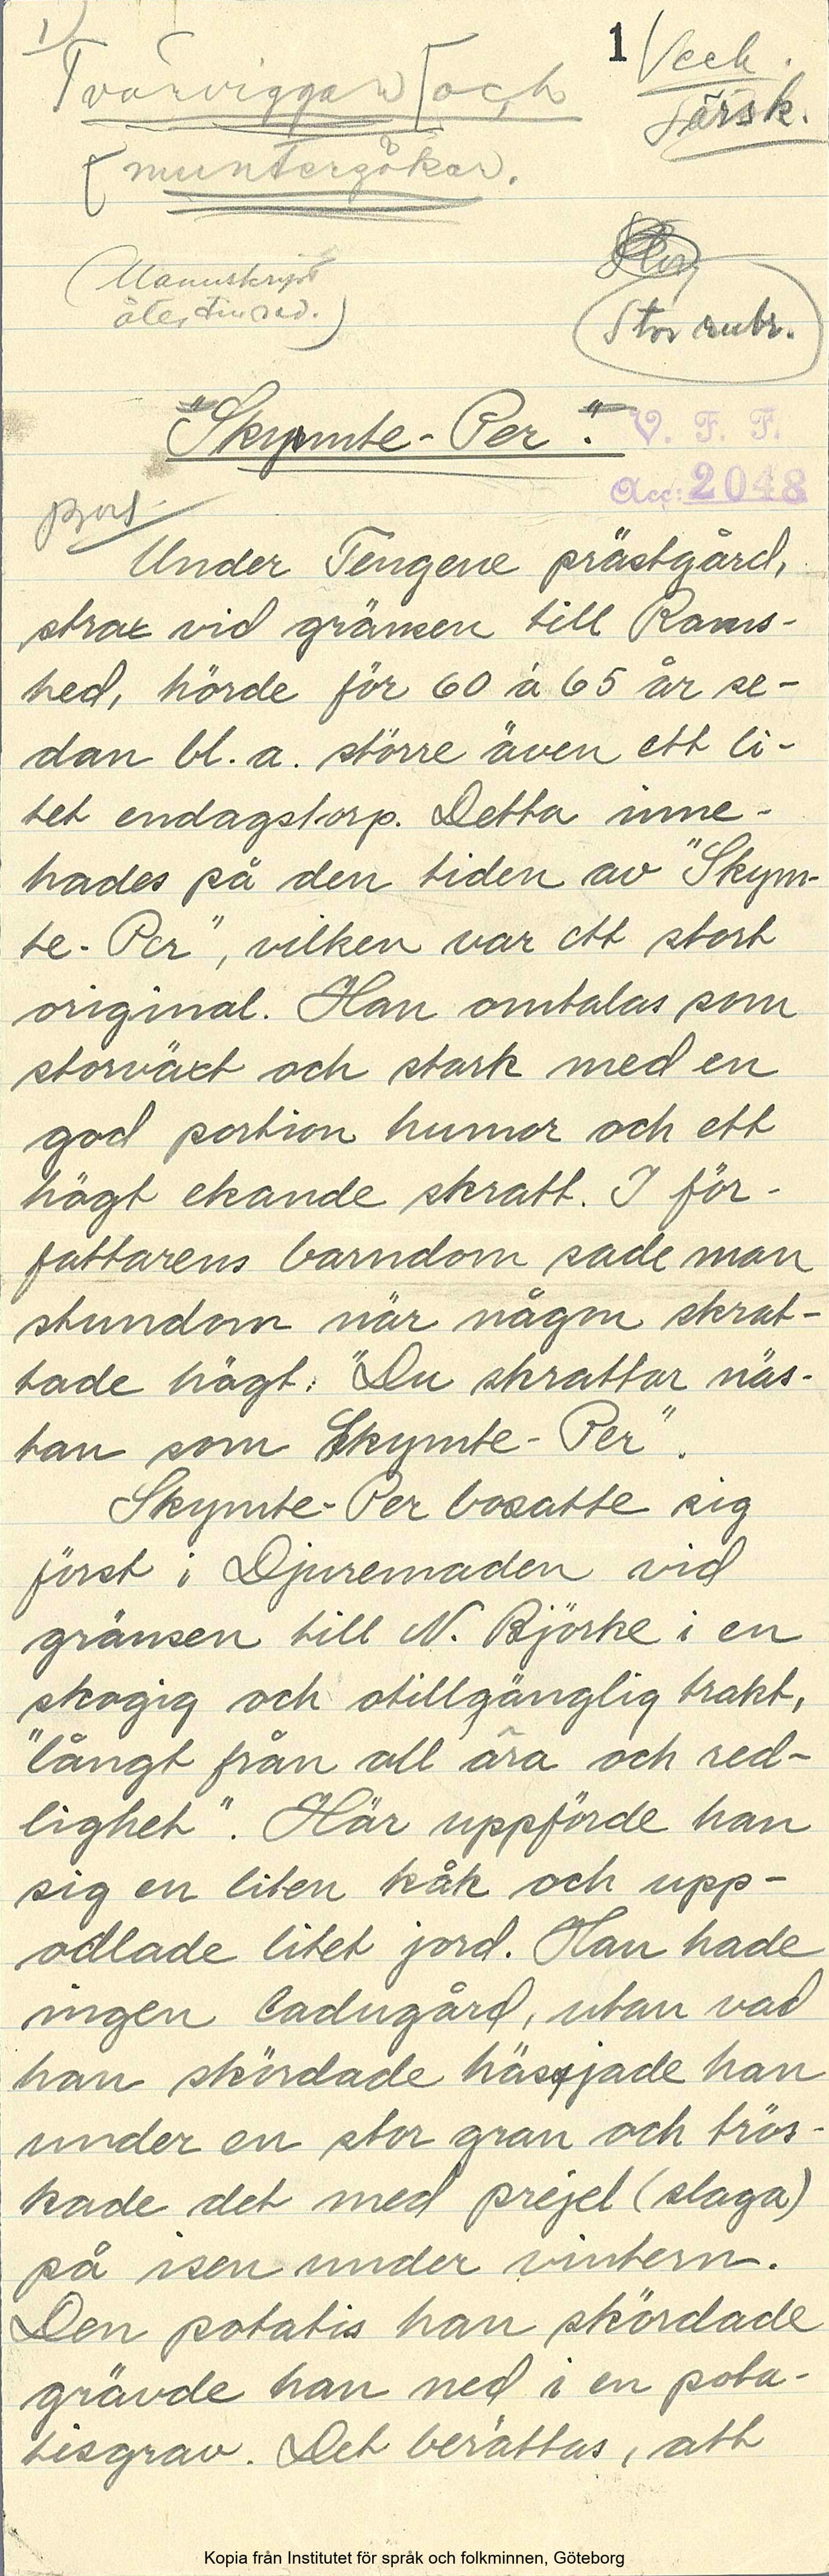 1)
1
Veck.
Särsk.
Tvärviggar och
muntergökar.
(Manuskript
åter
Stor rubr.
"Skymte-Per".
V. F. F.
Acc: 2048
Under Tengene prästgård,
strax vid gränsen till Rams-
hed, hörde för 60 à 65 år se-
dan bl. a. större även ett li-
tet endagstorp. Detta inne-
hades på den tiden av "Skym-
te-Per", vilken var ett stort
original. Han omtalas som
storväxt och stark med en
god portion humor och ett
högt ekande skratt. I för-
fattarens barndom sade man
stundom när någon skrat-
tade högt: "Du skrattar näs-
tan som Skymte-Per".
Skymte-Per bosatte sig
först i Djuremaden vid
gränsen till N. Björke i en
skogig och otillgänglig trakt,
"långt från all ära och red-
lighet". Här uppförde han
sig en liten kåk och upp-
odlade litet jord. Han hade
ingen ladugård, utan vad
han skördade hässjade han
under en stor gran och trös-
kade det med prejel (slaga)
på isen under vintern.
Den potatis han skördade
grävde han ned i en pota-
tisgrav. Det berättas, att
Kopia från Institutet för språk och folkminnen, Göteborg